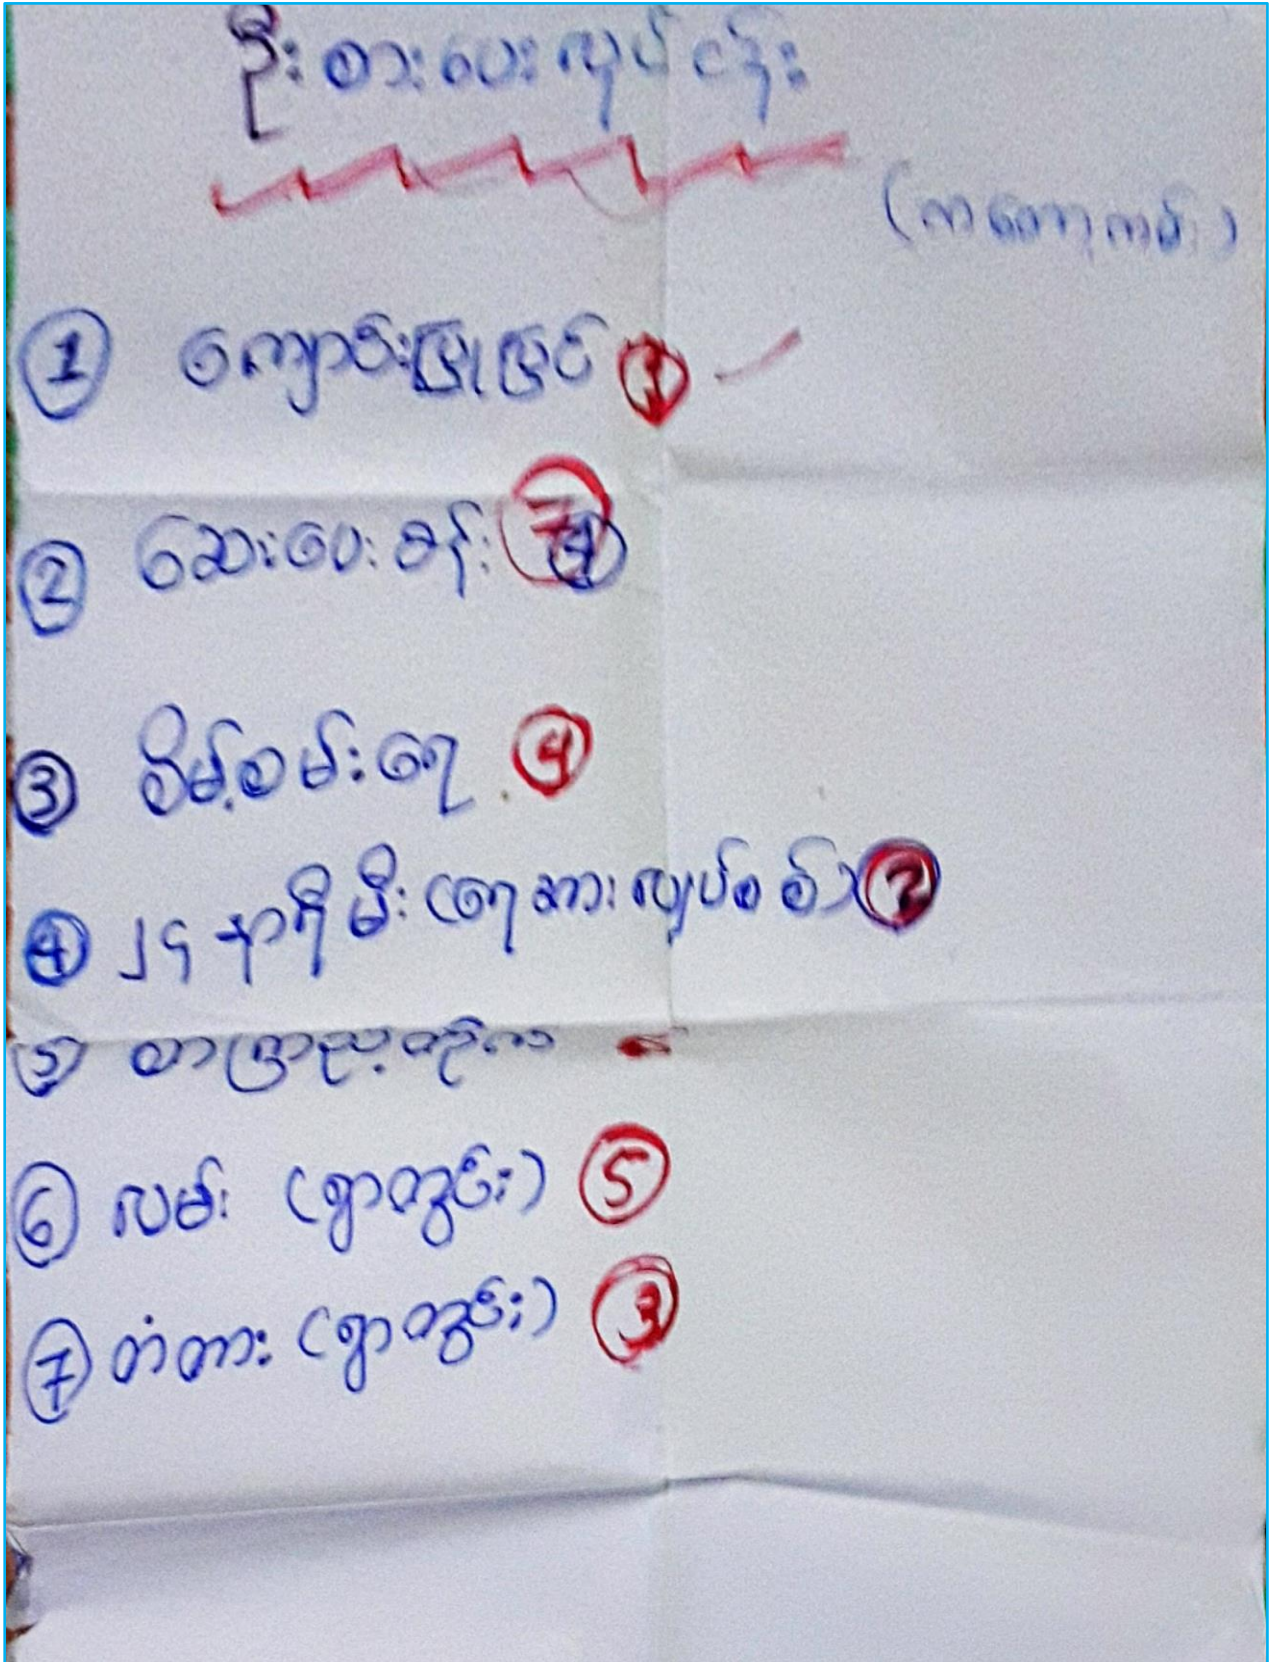 ဦးစားပေးလုပ်ငန်း
① ကျောင်းပြုပြင် ①
② ဆေးပေးခန်း
③ စိမ့်စမ်းရေ ④
④ ၂၄ နာရီမီး (ရေအားလျှပ်စစ်) ②
⑤
⑥ လမ်း (ရွာတွင်း) ⑤
⑦ တံတား (ရွာတွင်း) ③